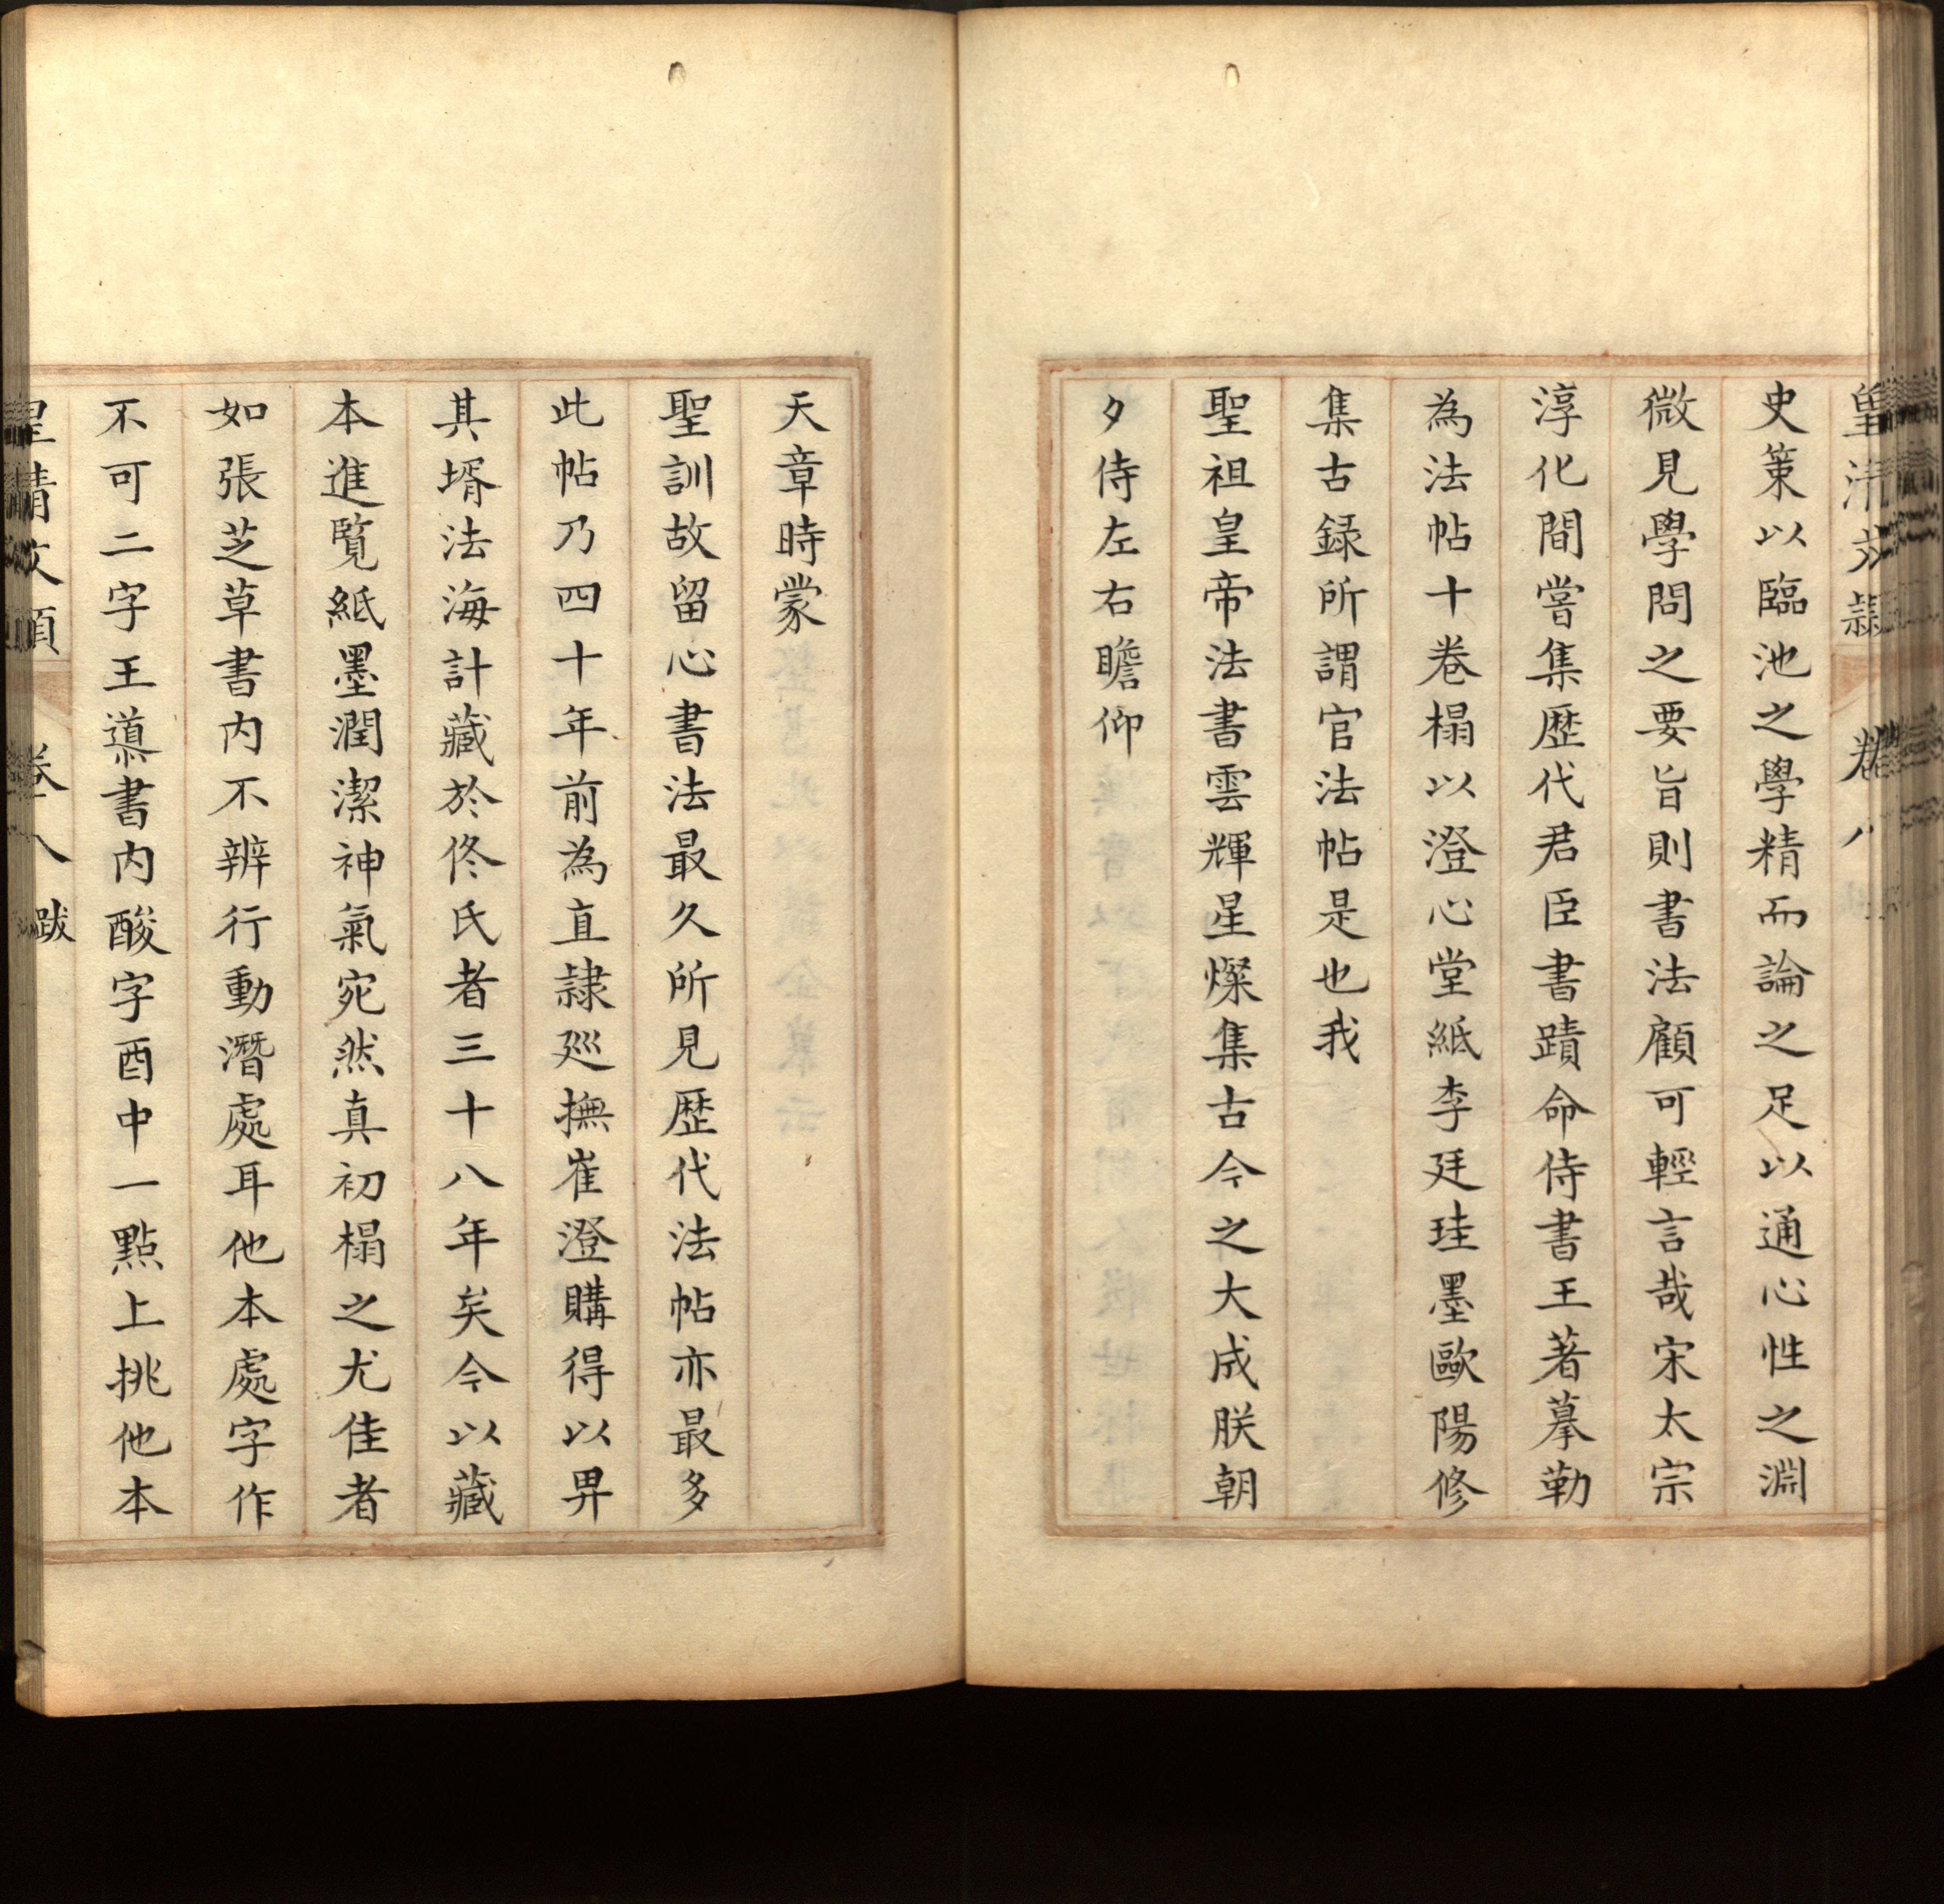 皇清文穎 卷八
史策以臨池之學精而論之足以通心性之淵
微見學問之要旨則書法顧可輕言哉宋太宗
淳化間嘗集歷代君臣書蹟命侍書王著摹勒
為法帖十卷榻以澄心堂紙李廷珪墨歐陽修
集古録所謂官法帖是也我
聖祖皇帝法書雲輝星燦集古今之大成朕朝
夕侍左右瞻仰
天章時蒙
聖訓故留心書法最久所見歷代法帖亦最多
此帖乃四十年前為直隸廵撫崔澄購得以畀
其壻法海計藏於佟氏者三十八年矣今以藏
本進覧紙墨潤潔神氣宛然真初榻之尤佳者
如張芝草書内不辨行動潛處耳他本處字作
不可二字王導書内酸字酉中一點上挑他本
皇清文穎 卷八 跋